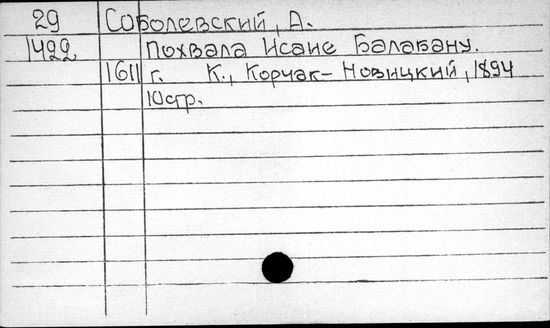 29 Соболевский, А.
1422 Похвала Исаие Балабану.
1611 г. К., Корчак-Новицкий, 1894
10стр.